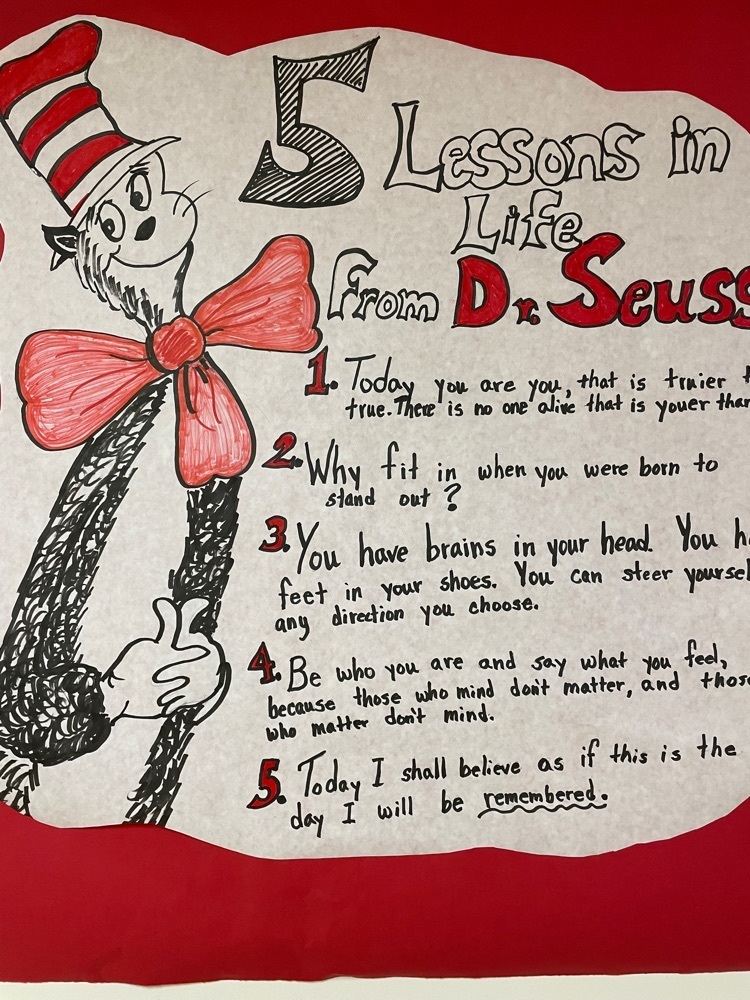 5 Lessons in
Life
From Dr. Seuss
1. Today you are you, that is truier
true. There is no one alive that is youer than
2. Why fit in when you were born to
stand out?
3. You have brains in your head. You
feet in your shoes. You can steer
any direction you choose.
4. Be who you are and say what you feel,
because those who mind don't matter, and those
who matter don't mind.
5. Today I shall believe as if this is the
day I will be remembered.